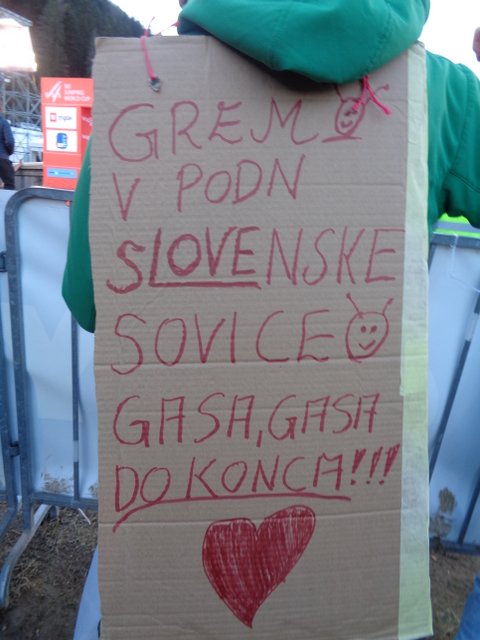 GREMO
V PODN
SLOVENSKE
SOVICE
GASA, GASA
DO KONCA!!!